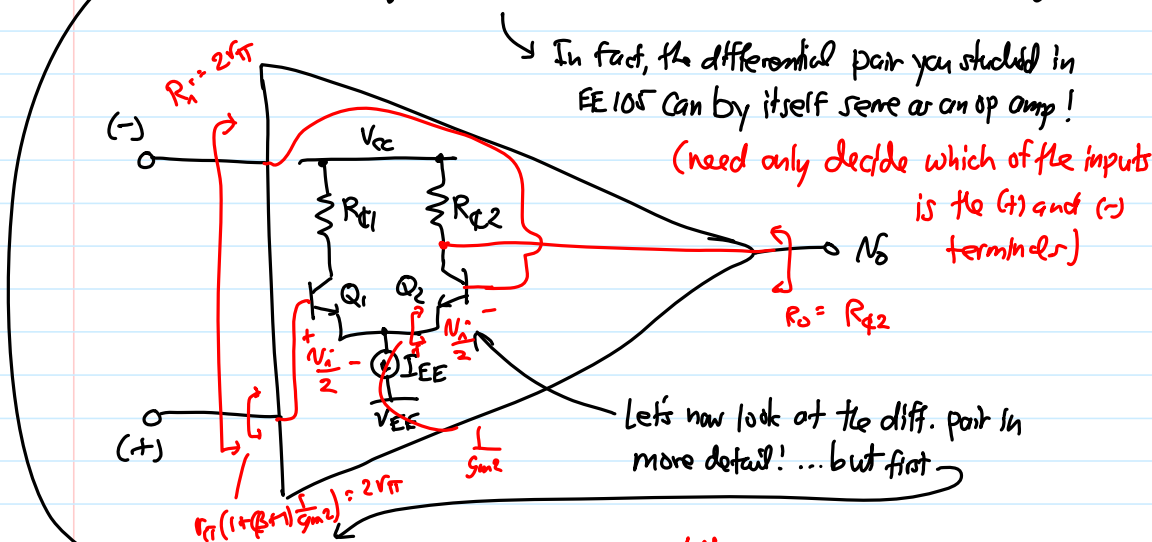 In fact, the differential pair you studied in
EE105 can by itself serve as an op amp!
(need only decide which of the inputs
is the (+) and (-)
terminals)
Ri = 2rπ
(-)
Vcc
RC1
RC2
No
Q1
Q2
Ro = RC2
+ Ni/2 -
Ni/2 -
IEE
VEE
(+)
1/gm2
Let's now look at the diff. pair in
more detail! ...but first
rπ(1+(β+1) 1/gm2) = 2rπ